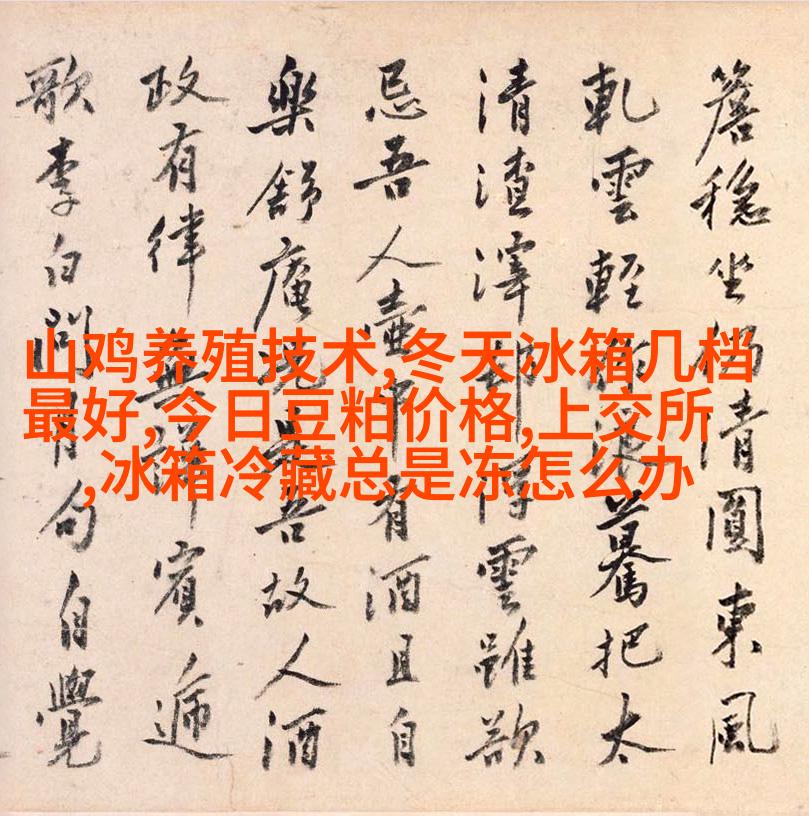 山鸡养殖技术,冬天冰箱几档
最好,今日豆粕价格,上交所
,冰箱冷藏总是冻怎么办
簷穏坐清圓東風
軋雲輕驀把太
清渣滓雲雖欲
忌吾人壺有酒且自
樂舒庵吾故人酒
政有律無賓遞
歌李白問月句自覺